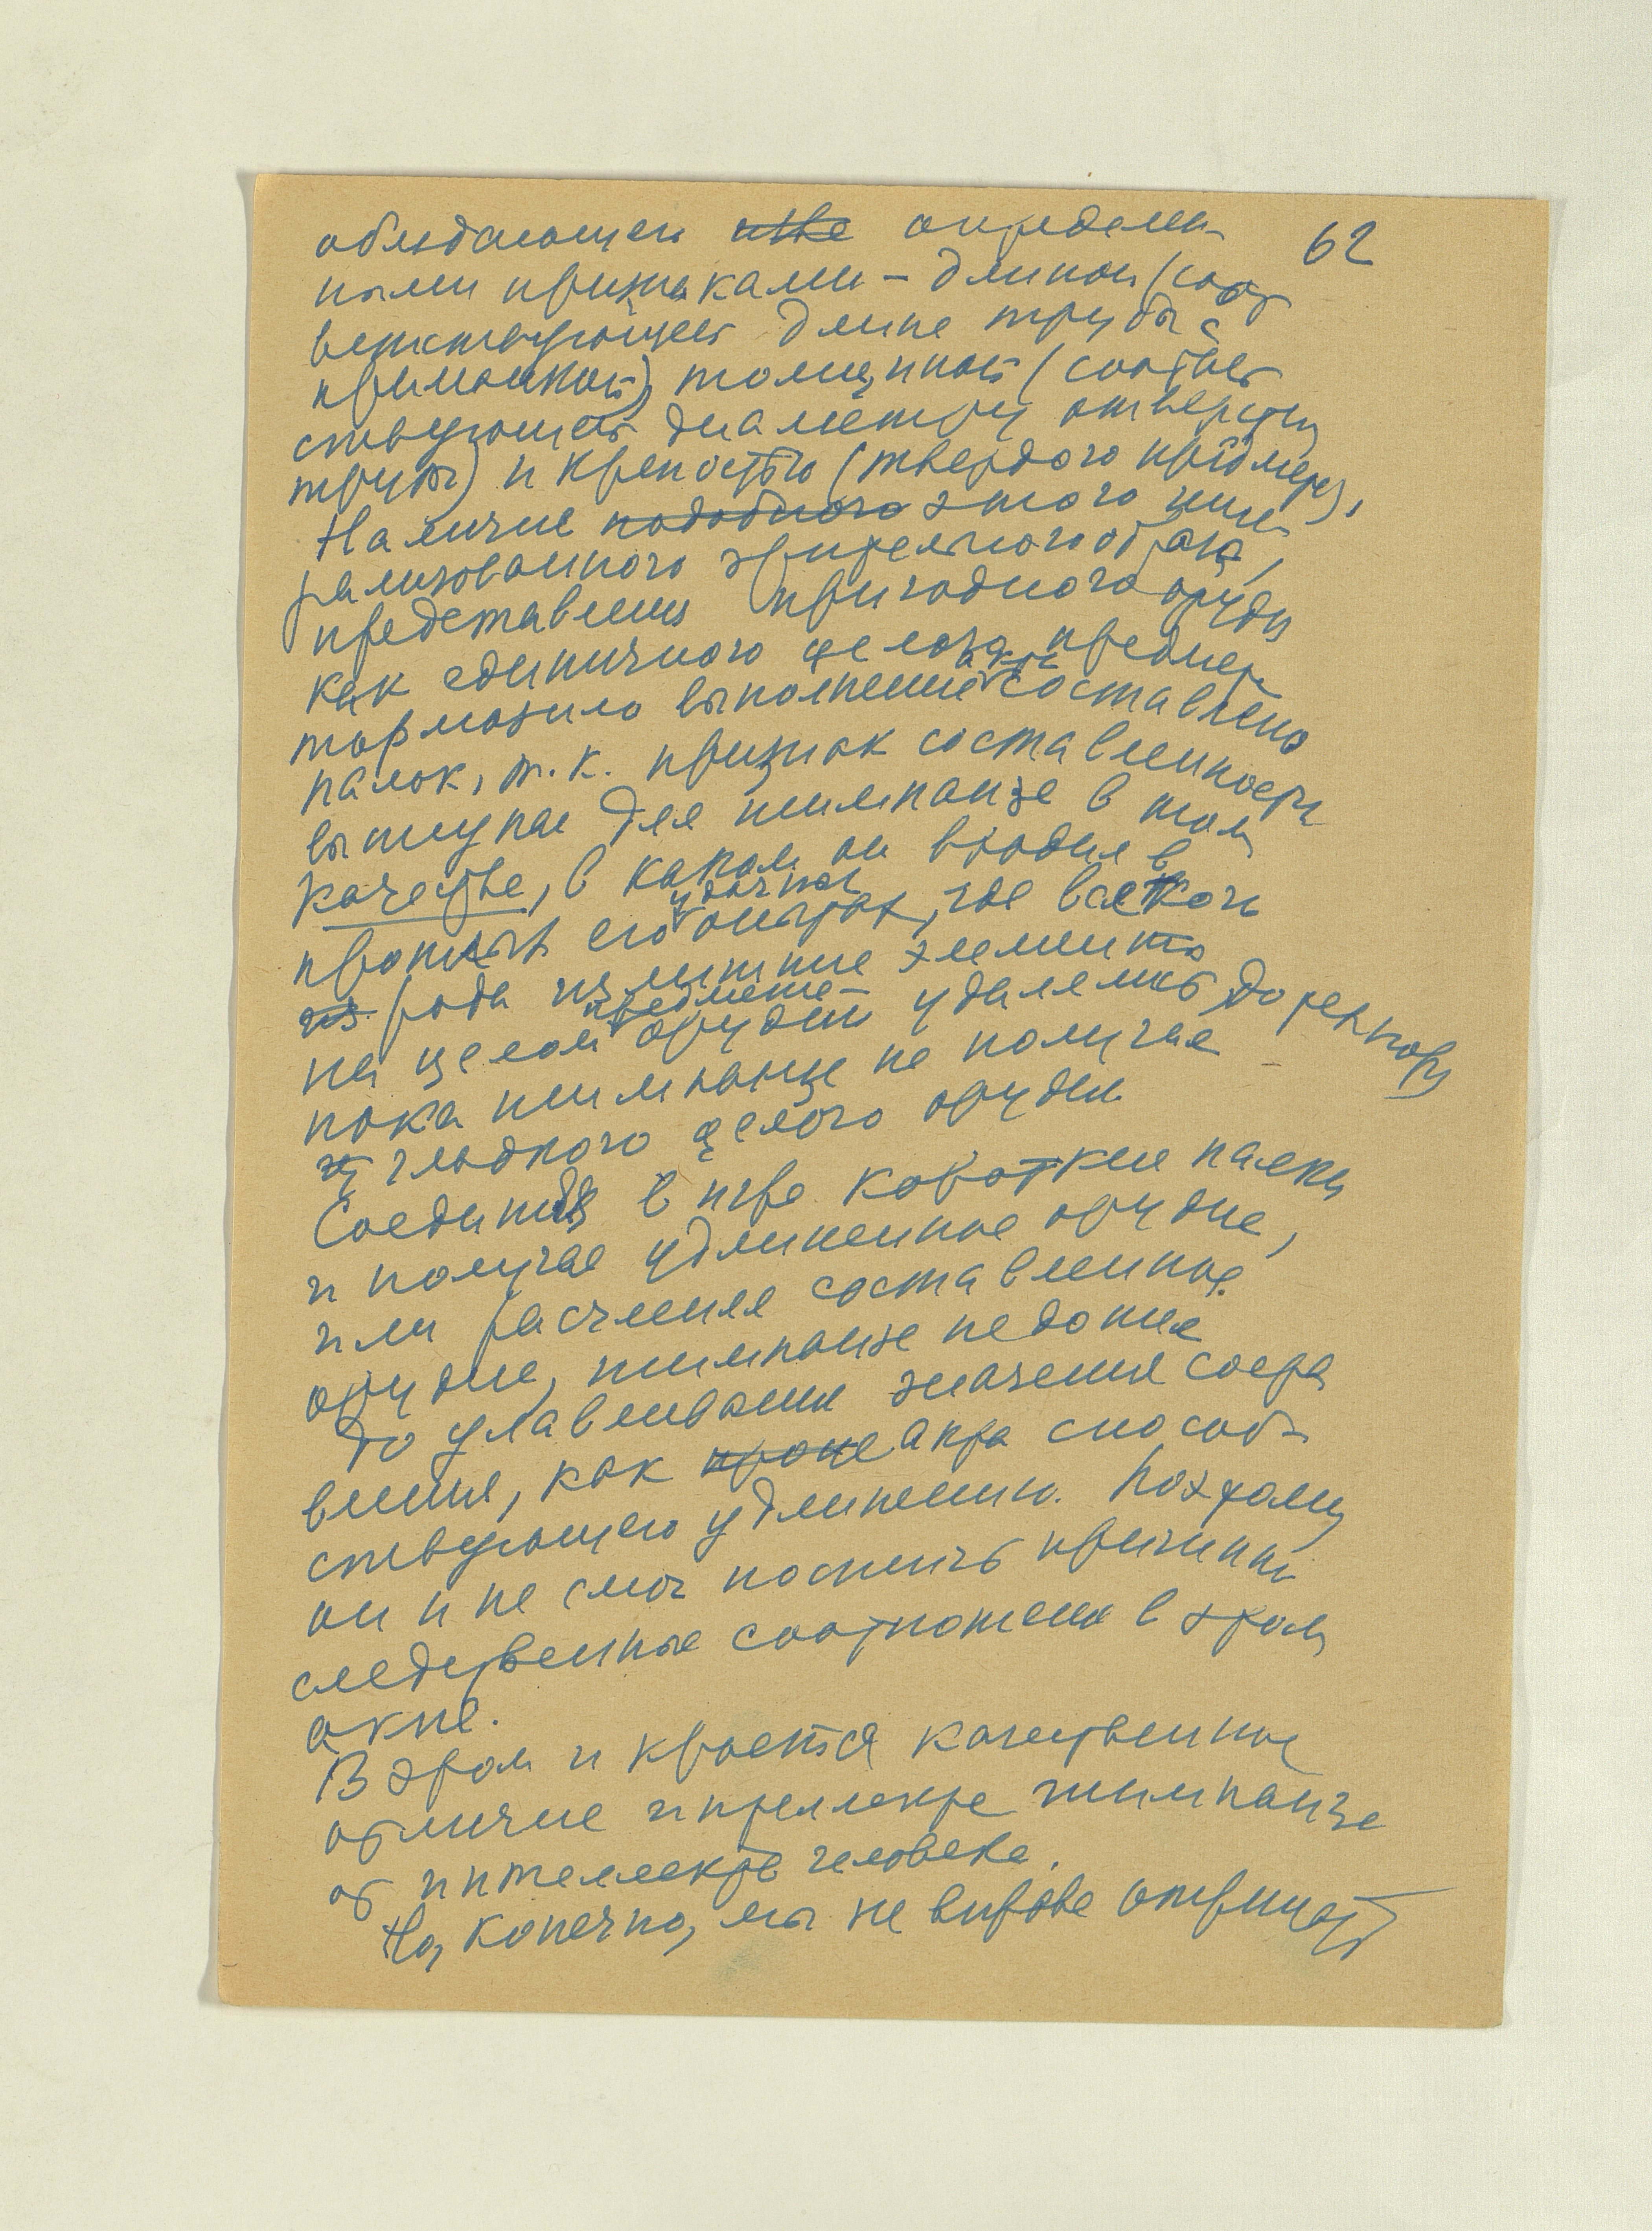 62
обладающего определен-
ными признаками – длиной (соот
ветствующей длине трубы с
приманкой), толщиной (соответ
ствующей диаметру отверстия
трубы) и крепостью (твердого предмета).
Наличие подобного этого гене
рализованного зрительного образа,
представления пригодного орудия
как единичного целого предмета
тормозило выполнение акта составления
палок, т.к. признак составленности
выступал для шимпанзе в том
качестве, в каком он входил в
прошлых его удачных опытах, где всякого
из рода излишние элементы
на целом предмете-орудии удалялись до тех пор,
пока шимпанзе не получал
гладкого целого орудия.
Соединяя в игре короткие палки
и получая удлиненное орудие,
или расчленяя составленное
орудие, шимпанзе не дошел
до улавливания значения соста
вления, как акта способ-
ствующего удлинению. Поэтому
он и не смог постичь причинно
следственные соотношения в этом
акте.
В этом и кроется качественное
отличие интеллекта шимпанзе
от интеллекта человека.
Но, конечно, мы не вправе отрицать